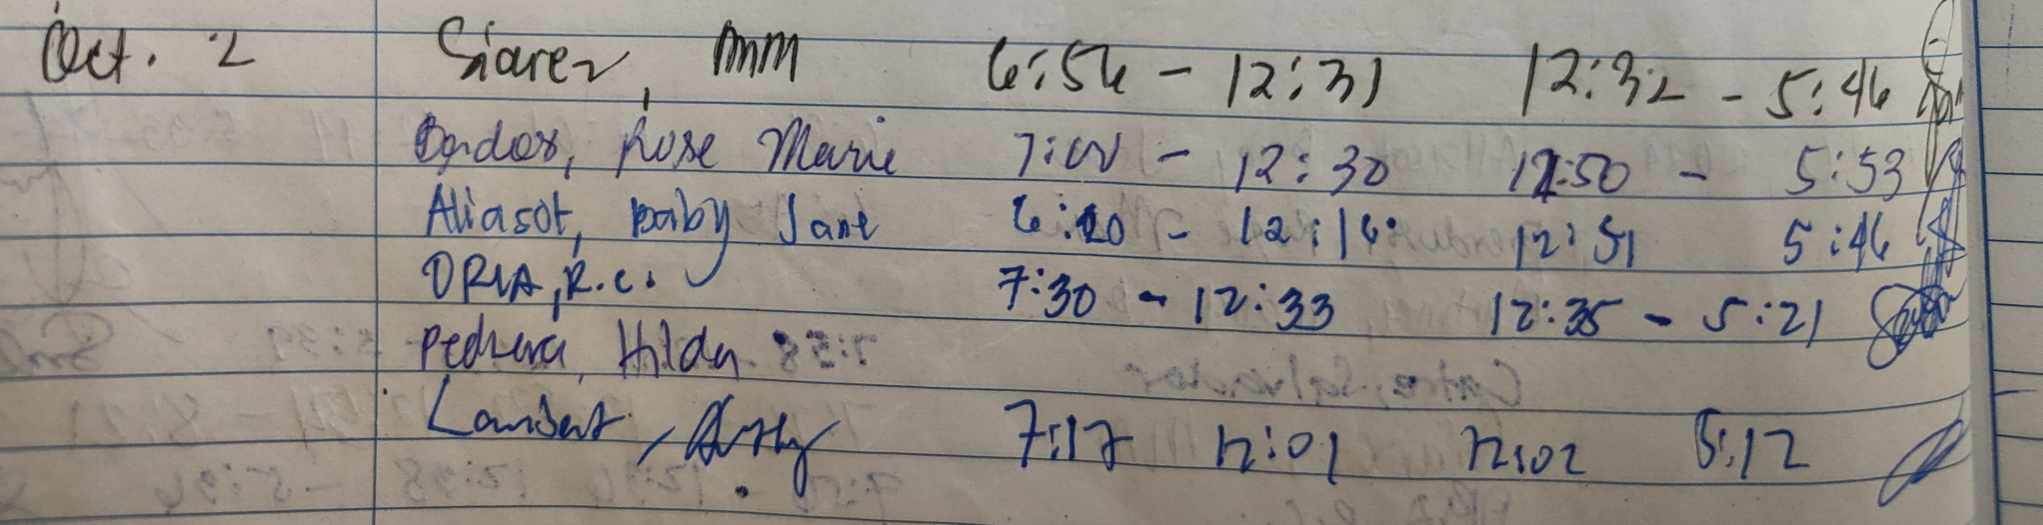 Oct. 2 Siarez, MM 6:56 - 12:31 12:32 - 5:46
Rose Marie 7:00 - 12:30 12:50 - 5:53
Aliasot, Baby Jane 6:20 - 12:16 12:51 5:46
ORIA, R.C. 7:30 - 12:33 12:35 - 5:21
Hilda
7:17 12:01 12:02 5:12